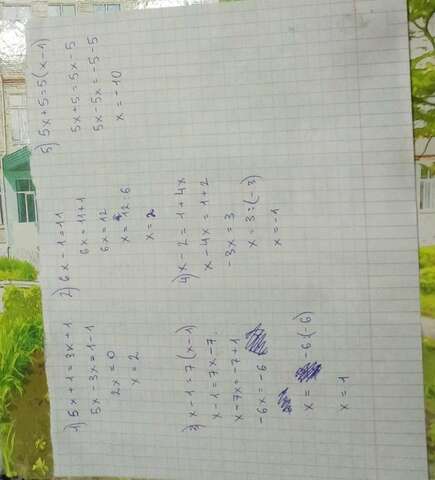 1) 5x+1=3x+1
5x-3x=1-1
2x=0
x=2
2) 6x-1=11
6x=11+1
6x=12
x=12:6
x=2
3) x-1=7(x-1)
x-1=7x-7
x-7x=-7+1
-6x=-6
x= -6(-6)
x=1
4) x-2=1+4x
x-4x=1+2
-3x=3
x=3:(-3)
x=-1
5) 5x+5=5(x-1)
5x+5=5x-5
5x-5x=-5-5
x=-10